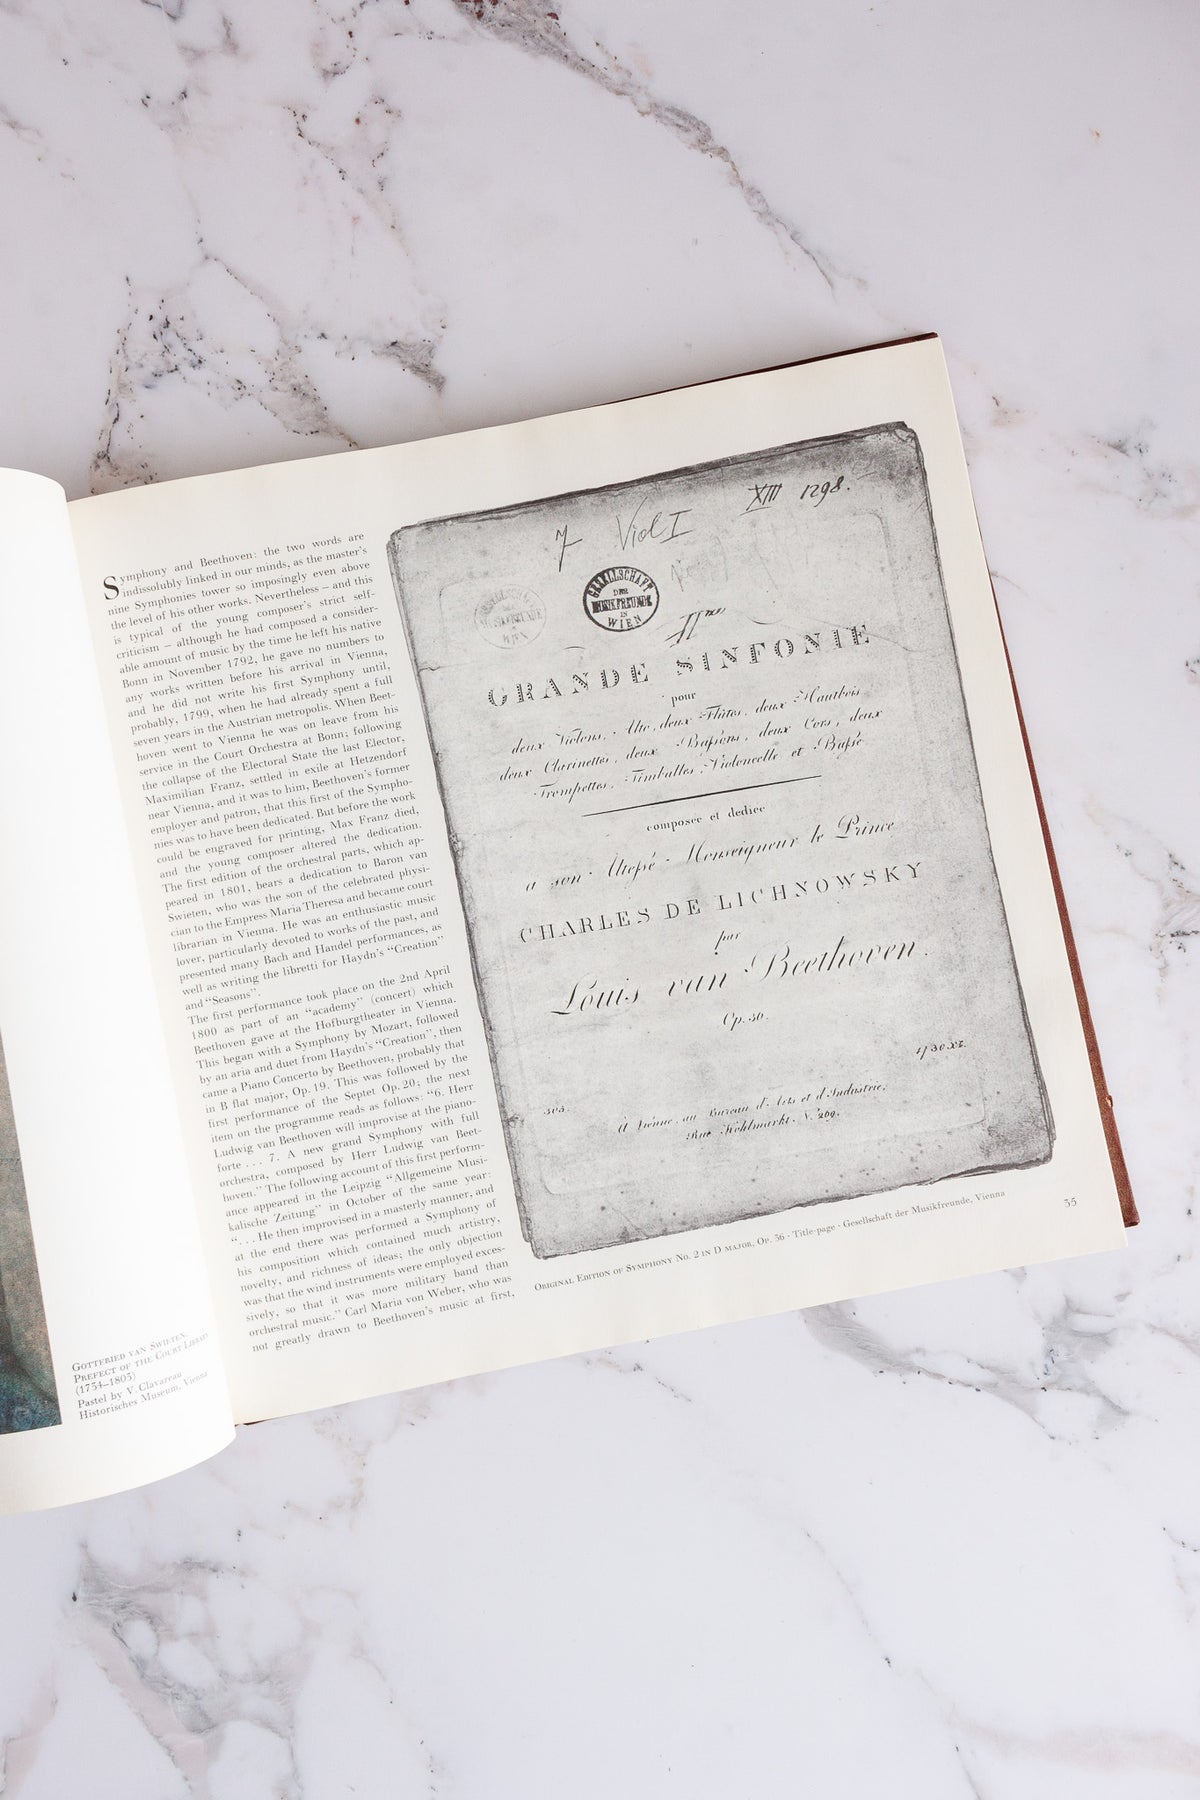 GOTTFRIED VAN SWIETEN,
PREFECT OF THE COURT LIBRARY
(1734–1803)
Pastel by V. Clavareau
Historisches Museum, Vienna
Symphony and Beethoven: the two words are
indissolubly linked in our minds, as the master's
nine Symphonies tower so imposingly even above
the level of his other works. Nevertheless – and this
is typical of the young composer's strict self-
criticism – although he had composed a consider-
able amount of music by the time he left his native
Bonn in November 1792, he gave no numbers to
any works written before his arrival in Vienna,
and he did not write his first Symphony until,
probably, 1799, when he had already spent a full
seven years in the Austrian metropolis. When Beet-
hoven went to Vienna he was on leave from his
service in the Court Orchestra at Bonn; following
the collapse of the Electoral State the last Elector,
Maximilian Franz, settled in exile at Hetzendorf
near Vienna, and it was to him, Beethoven's former
employer and patron, that this first of the Sympho-
nies was to have been dedicated. But before the work
could be engraved for printing, Max Franz died,
and the young composer altered the dedication.
The first edition of the orchestral parts, which ap-
peared in 1801, bears a dedication to Baron van
Swieten, who was the son of the celebrated physi-
cian to the Empress Maria Theresa and became court
librarian in Vienna. He was an enthusiastic music
lover, particularly devoted to works of the past, and
presented many Bach and Handel performances, as
well as writing the libretti for Haydn's "Creation"
and "Seasons".
The first performance took place on the 2nd April
1800 as part of an "academy" (concert) which
Beethoven gave at the Hofburgtheater in Vienna.
This began with a Symphony by Mozart, followed
by an aria and duet from Haydn's "Creation", then
came a Piano Concerto by Beethoven, probably that
in B flat major, Op. 19. This was followed by the
first performance of the Septet Op. 20; the next
item on the programme reads as follows: "6. Herr
Ludwig van Beethoven will improvise at the piano-
forte . . . 7. A new grand Symphony with full
orchestra, composed by Herr Ludwig van Beet-
hoven." The following account of this first perform-
ance appeared in the Leipzig "Allgemeine Musi-
kalische Zeitung" in October of the same year:
". . . He then improvised in a masterly manner, and
at the end there was performed a Symphony of
his composition which contained much artistry,
novelty, and richness of ideas; the only objection
was that the wind instruments were employed exces-
sively, so that it was more military band than
orchestral music." Carl Maria von Weber, who was
not greatly drawn to Beethoven's music at first,
7 Viol I XIII 1298.
GESELLSCHAFT
DER
MUSIKFREUNDE
IN
WIEN
GRANDE SINFONIE
pour
deux Violons, Alto, deux Flûtes, deux Hautbois
deux Clarinettes, deux Bassons, deux Cors, deux
Trompettes, Timballes, Violoncelle et Basse
composée et dediée
a son Altesse Monseigneur le Prince
CHARLES DE LICHNOWSKY
par
Louis van Beethoven.
Op. 36.
303.
à Vienne, au Bureau d'Arts et d'Industrie.
Rue Kohlmarkt. N.° 269.
ORIGINAL EDITION OF SYMPHONY NO. 2 IN D MAJOR, OP. 36 · Title-page · Gesellschaft der Musikfreunde, Vienna
35